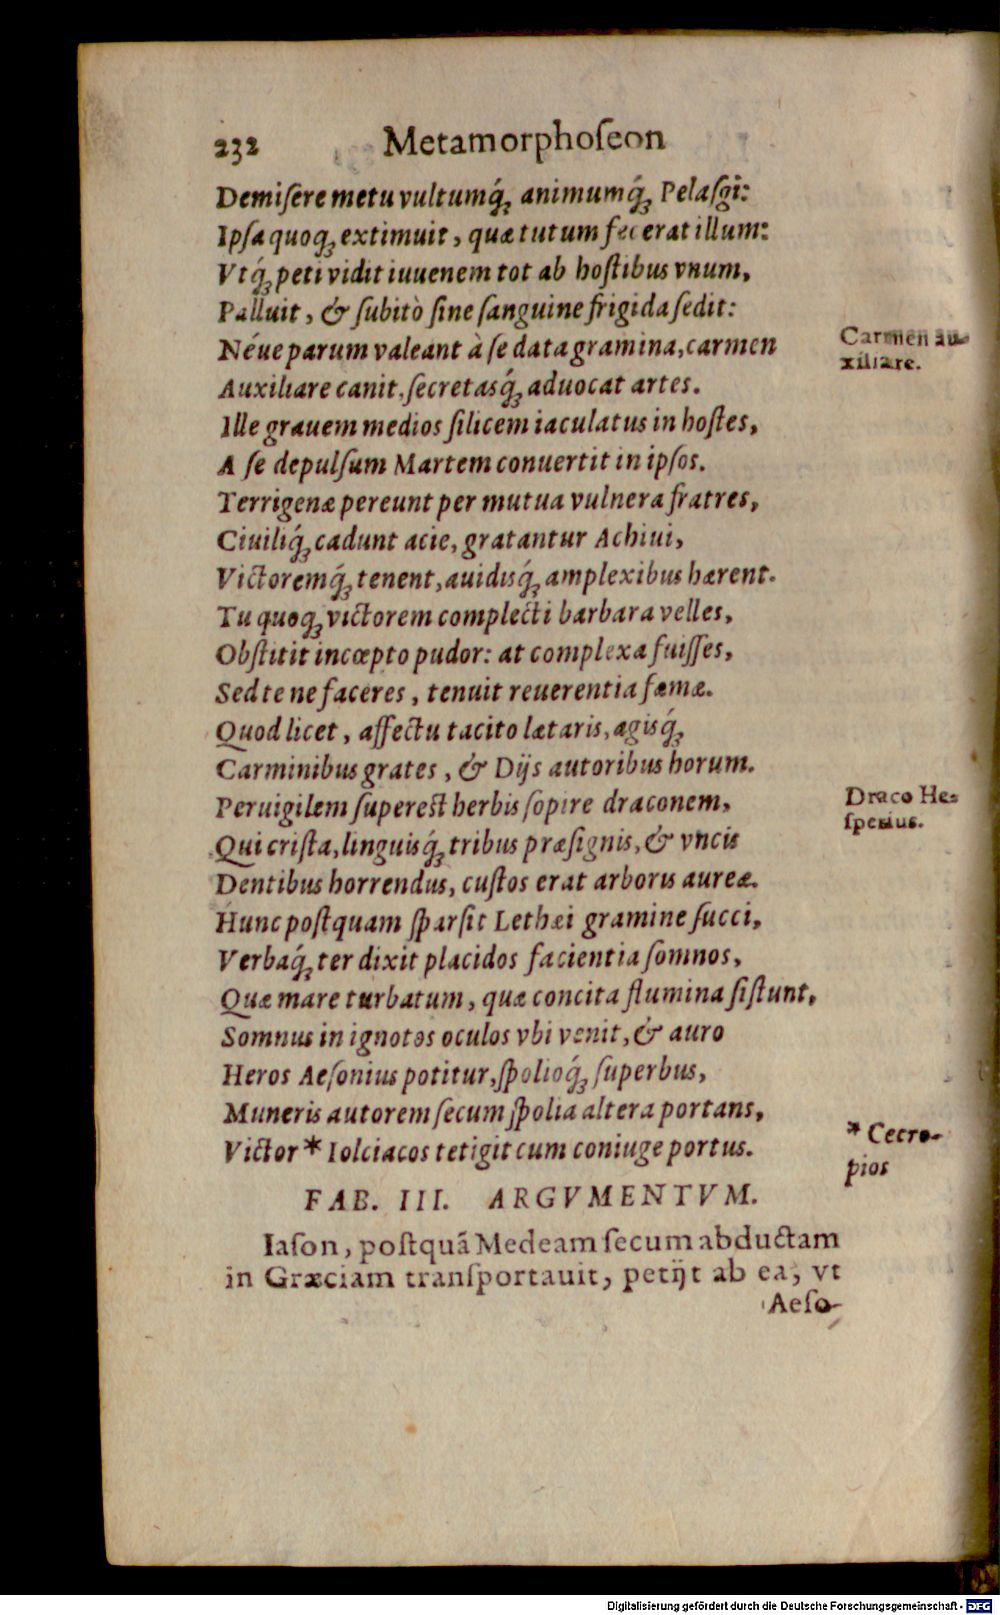 232 Metamorphoſeon
Demiſere metu vultumq́ꝫ animumq́ꝫ Pelaſgi:
Ipſa quoqꝫ extimuit, quæ tutum fecerat illum:
Vtq́ꝫ peti vidit iuuenem tot ab hoſtibus vnum,
Palluit, & ſubitò ſine ſanguine frigida ſedit:
Néue parum valeant à ſe data gramina, carmen
Carmen au-
xiliare.
Auxiliare canit, ſecretasq́ꝫ aduocat artes.
Ille grauem medios ſilicem iaculatus in hoſtes,
A ſe depulſum Martem conuertit in ipſos.
Terrigenæ pereunt per mutua vulnera fratres,
Ciuiliq́ꝫ cadunt acie, gratantur Achiui,
Victoremq́ꝫ tenent, auidisq́ꝫ amplexibus hærent.
Tu quoqꝫ victorem complecti barbara velles,
Obſtitit incœpto pudor: at complexa fuiſſes,
Sed te ne faceres, tenuit reuerentia famæ.
Quod licet, affectu tacito lætaris, agisq́ꝫ
Carminibus grates, & Dijs autoribus horum.
Peruigilem ſupereſt herbis ſopire draconem,
Draco He-
ſperius.
Qui criſta, linguisq́ꝫ tribus præſignis, & vncis
Dentibus horrendus, cuſtos erat arboris aureæ.
Hunc poſtquam ſparſit Lethæi gramine ſucci,
Verbaq́ꝫ ter dixit placidos facientia ſomnos,
Quæ mare turbatum, quæ concita flumina ſiſtunt,
Somnus in ignotos oculos vbi venit, & auro
Heros Aeſonius potitur, ſpolioq́ꝫ ſuperbus,
Muneris autorem ſecum ſpolia altera portans,
Victor * Iolciacos tetigit cum coniuge portus.
* Cecro-
pios
FAB. III. ARGVMENTVM.
Iaſon, poſtquã Medeam ſecum abductam
in Græciam tranſportauit, petijt ab ea, vt
Aeſo-
Digitalisierung gefördert durch die Deutsche Forschungsgemeinschaft - DFG